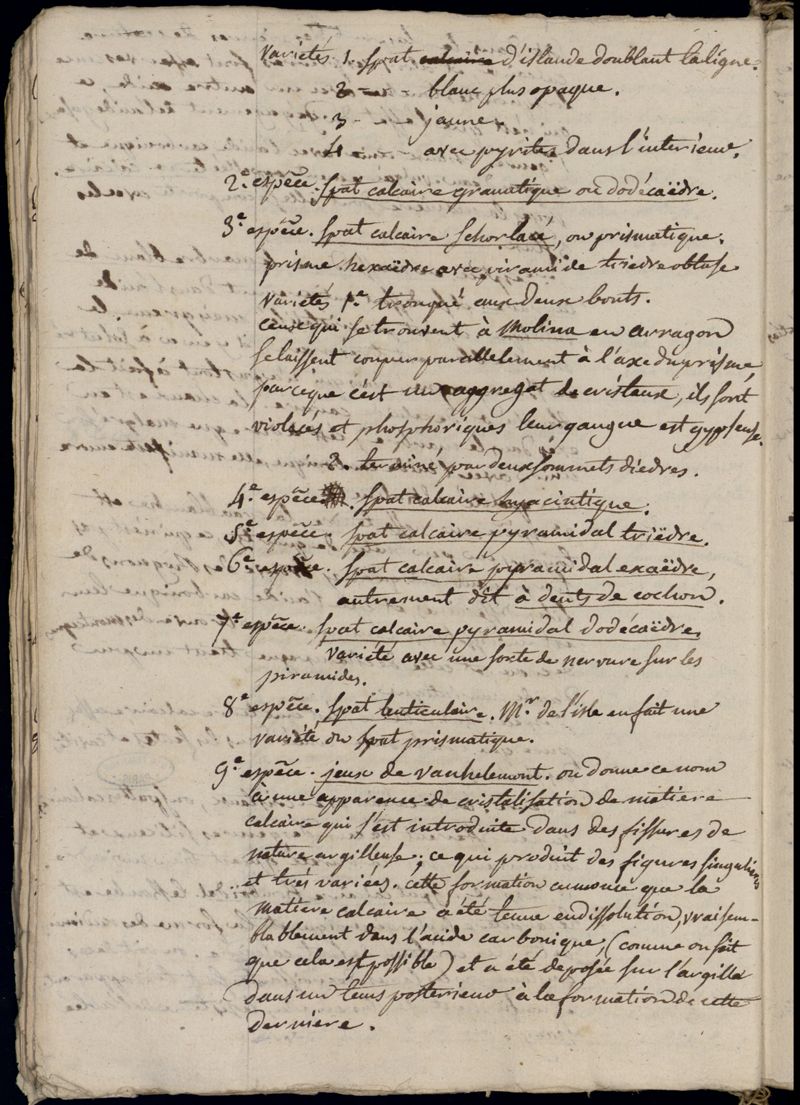 variétés 1. spat calcaire d'islande doublant la ligne.
2 - blanc plus opaque.
3 - jaune
4 avec pyrites dans l'interieur.
2.e espéce. spat calcaire gramatique ou dodécaëdre.
3.e espéce. spat calcaire schorlacé, ou prismatique.
prisme hexaëdre avec piramide trièdre obtuse
variétés 1.e tronqué aux deux bouts.
ceux qui se trouvent à Molina en arragon
se laissent couper parallelement à l'axe du prisme,
parceque c'est un aggregat de cristaux, ils sont
violacés et phosphoriques leur gangue est gypseuse.
2. terminé par deux sommets diedres.
4.e espéce. spat calcaire hyacintique.
5.e espéce. spat calcaire pyramidal triëdre.
6.e espéce. spat calcaire pyramidal exaëdre,
autrement dit à dents de cochon.
7.e espéce. spat calcaire pyramidal dodécaëdre.
variété avec une sorte de nervure sur les
piramides.
8.e espéce. spat lenticulaire. Mr. de l'isle en fait une
variété du spat prismatique.
9.e espéce. jeux de vanhelemont. on donne ce nom
à une apparence de cristalisation de matiere
calcaire qui s'est introduite dans des fissures de
nature argilleuse; ce qui produit des figures singulieres
et trés variées. cette formation annonce que la
matiere calcaire a été tenue en dissolution, vraisem-
blablement dans l'acide carbonique, (comme on sait
que cela est possible) et a été deposée sur l'argille
dans un tems posterieur à la formation de cette
derniere.